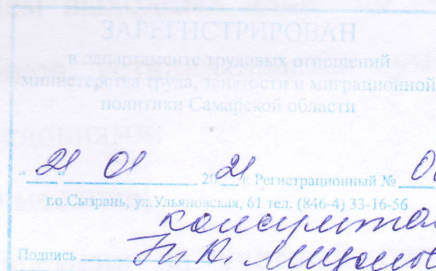 ЗАРЕГИСТРИРОВАН
в департаменте трудовых отношений
министерства труда, занятости и миграционной
политики Самарской области
" 21 01 20 21 г. Регистрационный № 0
г.о.Сызрань, ул.Ульяновская, 61 тел. (846-4) 33-16-56
консульта
Подпись